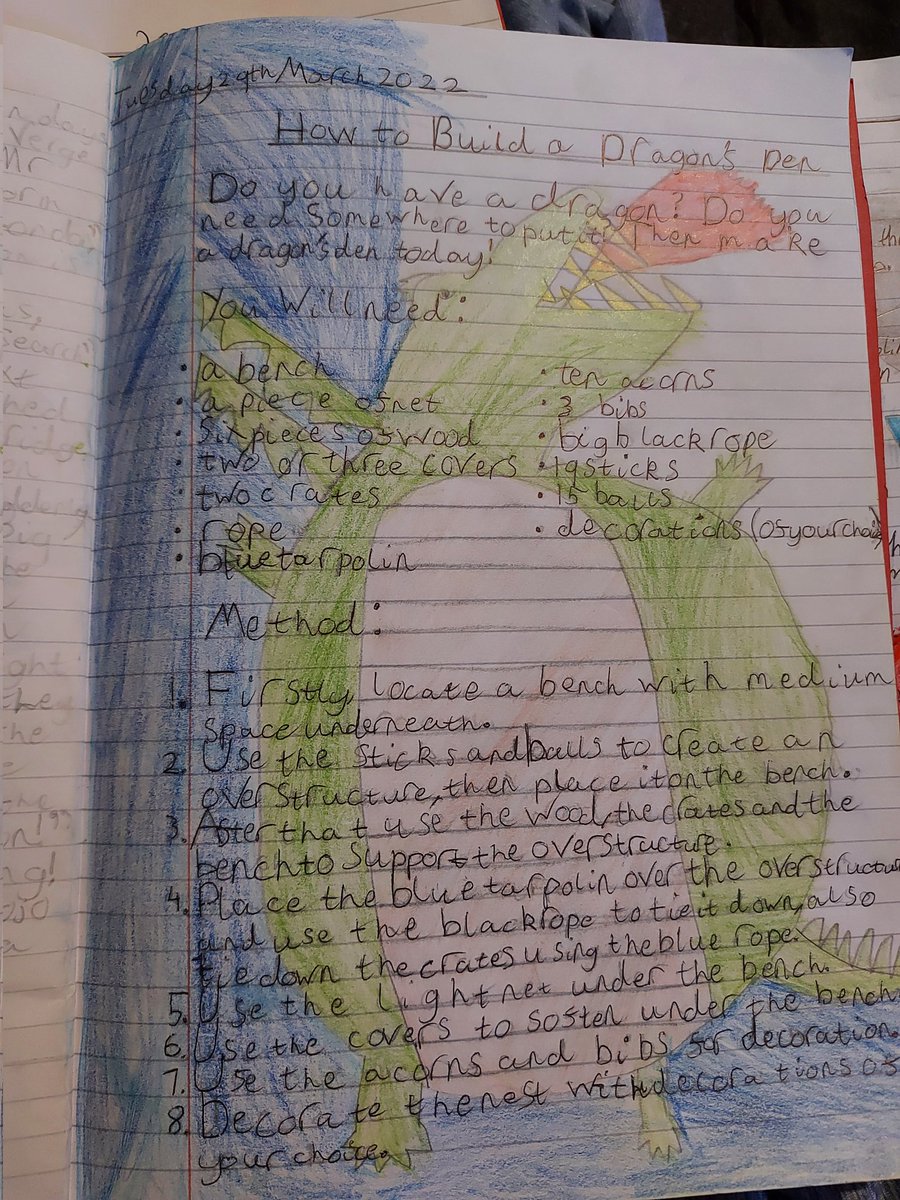 Tuesday 29th March 2022
How to Build a Dragon's Den
Do you have a dragon? Do you
need somewhere to put it? Then make
a dragon's den today!
You Will need:
• a bench
• a piece of net
• six pieces of wood
• two or three covers
• two crates
• rope
• blue tarpolin
• ten acorns
• 3 bibs
• big black rope
• 19 sticks
• 15 balls
• decorations (of your choice)
Method:
1. Firstly, locate a bench with medium
space underneath.
2. Use the sticks and balls to create an
overstructure, then place it on the bench.
3. After that use the wood, the crates and the
bench to support the overstructure.
4. Place the blue tarpolin over the overstructure
and use the black rope to tie it down, also
tie down the crates using the blue rope.
5. Use the light net under the bench.
6. Use the covers to soften under the bench.
7. Use the acorns and bibs for decoration.
8. Decorate the nest with decorations of
your choice.